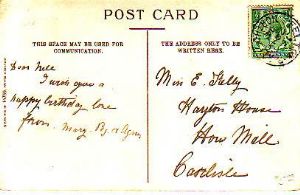 POST CARD
THIS SPACE MAY BE USED FOR
COMMUNICATION.
THE ADDRESS ONLY TO BE
WRITTEN HERE.
Dear Nell
I wish you a
happy birthday love
from Mary
Miss E. Kelly
Hayton House
How Mill
Carlisle